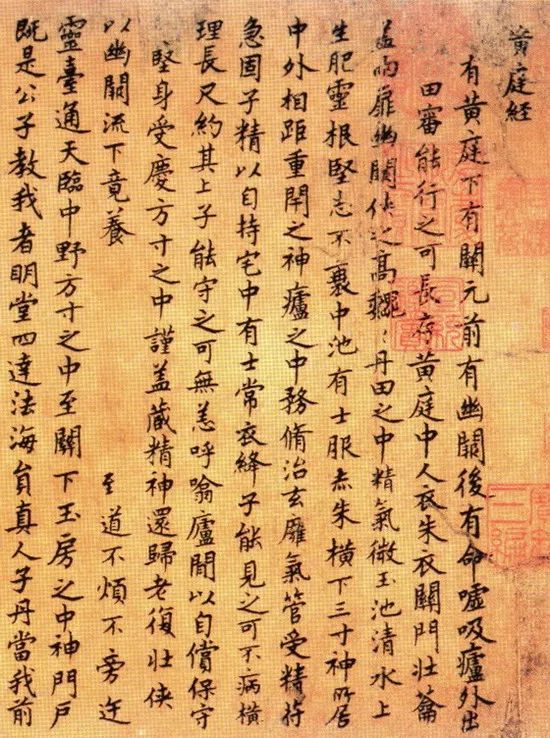 黄庭経
有黄庭下有關元前有幽闕後有命噓吸廬外出
田審能行之可長存黄庭中人衣朱衣關門壮蘥
盖兩扉幽闕侠之高巍〻丹田之中精氣微玉池清水上
生肥靈根堅志不衰中池有士服赤朱横下三寸神所居
中外相距重閇之神廬之中務脩治玄廱氣管受精符
急固子精以自持宅中有士常衣絳子能見之可不病横
理長尺約其上子能守之可無恙呼噏廬間以自償保守
堅身受慶方寸之中謹盖藏精神還歸老復壮侠
以幽闕流下竟養 至道不煩不旁迕
靈臺通天臨中野方寸之中至關下玉房之中神門戸
既是公子教我者明堂四達法海員真人子丹當我前